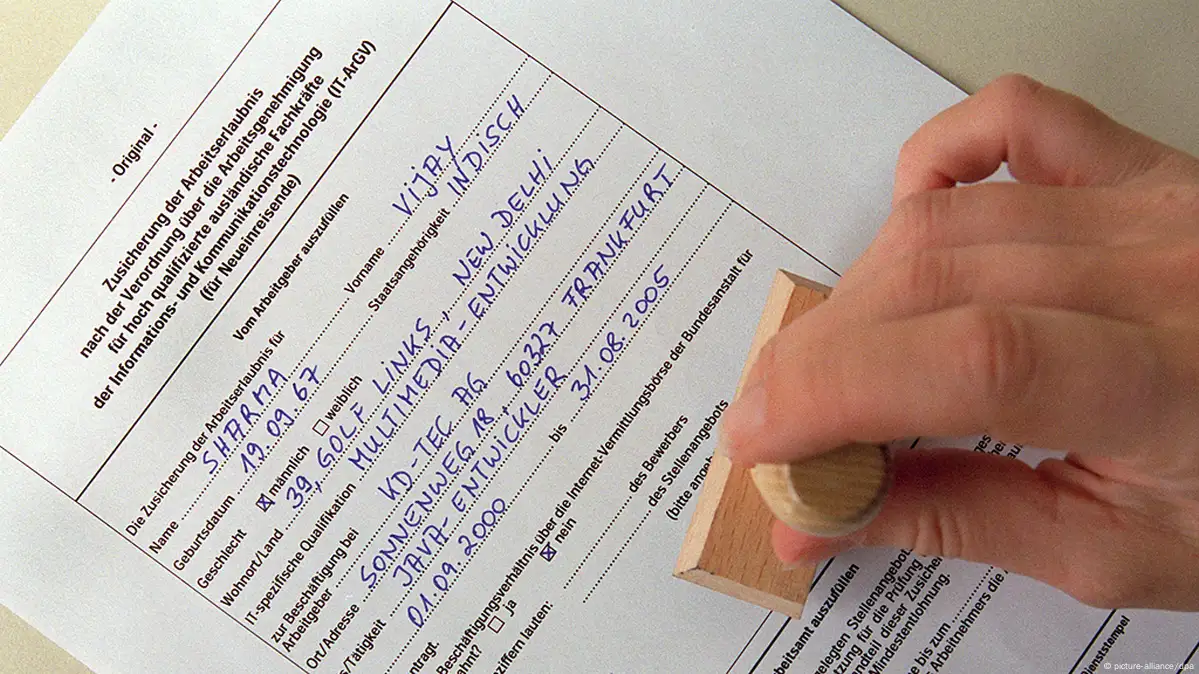 - Original -
Zusicherung der Arbeitserlaubnis
nach der Verordnung über die Arbeitsgenehmigung
für hoch qualifizierte ausländische Fachkräfte
der Informations- und Kommunikationstechnologie (IT-ArGV)
(für Neueinreisende)
Vom Arbeitgeber auszufüllen
Die Zusicherung der Arbeitserlaubnis für
Name SHARMA Vorname VIJAY
Geburtsdatum 19.09.67 Staatsangehörigkeit INDISCH
Geschlecht ☒ männlich ☐ weiblich
Wohnort/Land 39, GOLF LINKS, NEW DELHI
IT-spezifische Qualifikation MULTIMEDIA-ENTWICKLUNG
zur Beschäftigung bei
Arbeitgeber KD-TEC AG
Ort/Adresse SONNENWEG 18, 60327 FRANKFURT
s/Tätigkeit JAVA-ENTWICKLER
01.09.2000 bis 31.08.2005
ntragt.
Beschäftigungsverhältnis über die Internet-Vermittlungsbörse der Bundesanstalt für
ahnt? ☐ ja ☒ nein
ziffern lauten: des Bewerbers
des Stellenangebots
(bitte ange
beitsamt auszufüllen
elegten Stellenangebot
zung für die Prüfung
ndteil dieser Zusiche
Mindestentlohnung.
e bis zum
Arbeitnehmers die
ienststempel
© picture-alliance/dpa